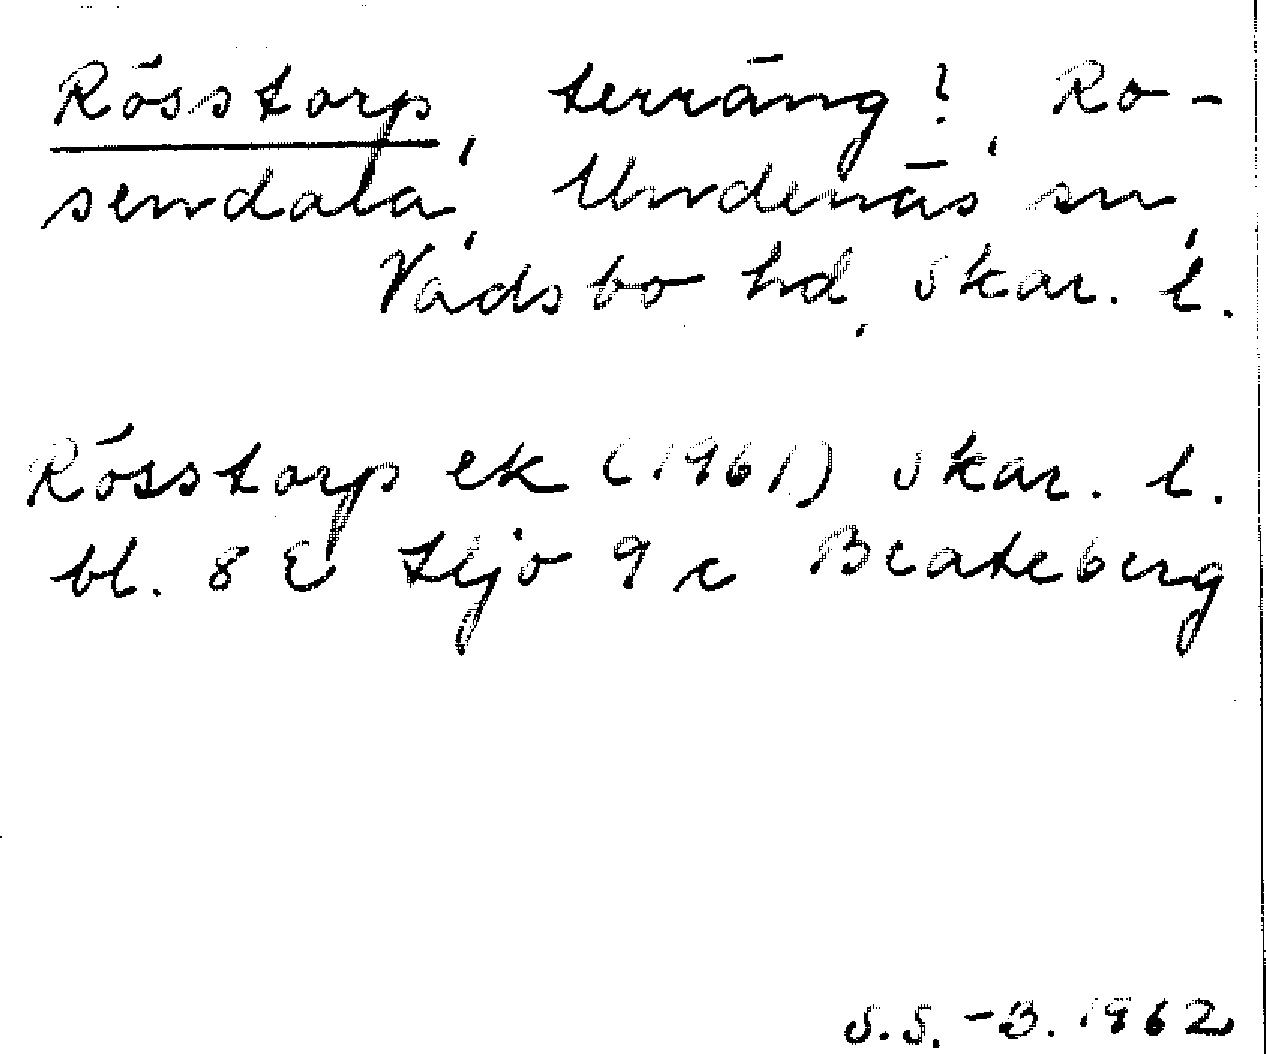 Rösstorp, terräng?, Ro-
sendala, Undenäs sn,
Vadsbo hd, Skar. l.
Rösstorp ek (1961) Skar. l.
bl. 8 E Hjo 9 c Beateberg
S.S.-B. 1962